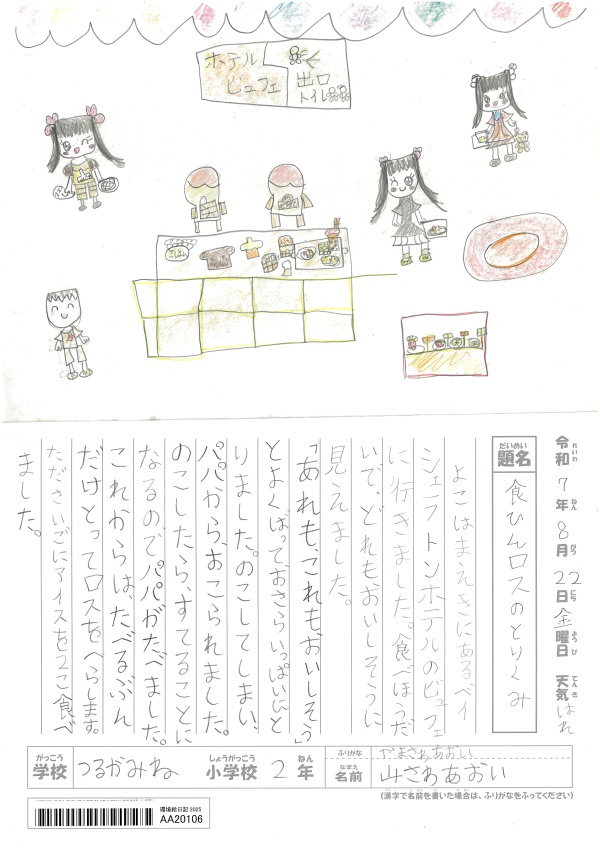 ホテル
ビュフェ
出口
トイレ
れいわ ねん がつ にち ようび てんき
令和7年8月22日金曜日 天気 はれ
だいめい
題名 食ひんロスのとりくみ
よこはまえきにあるベイ
シェラトンホテルのビュフェ
に行きました。食べほうだ
いで、どれもおいしそうに
見えました。
「あれも、これも、おいしそう」
とよくばっておさらいっぱいにと
りました。のこしてしまい、
パパから、おこられました。
のこしたら、すてることに
なるのでパパがたべました。
これからは、たべるぶん
だけとってロスをへらします。
ただ さいごにアイスを2こ食べ
ました。
がっこう しょうがっこう ねん ふりがな やまさわあおい
学校 つるがみね 小学校 2年 なまえ 名前 山さわあおい
(漢字で名前を書いた場合は、ふりがなをふってください)
環境絵日記 2025
AA20106